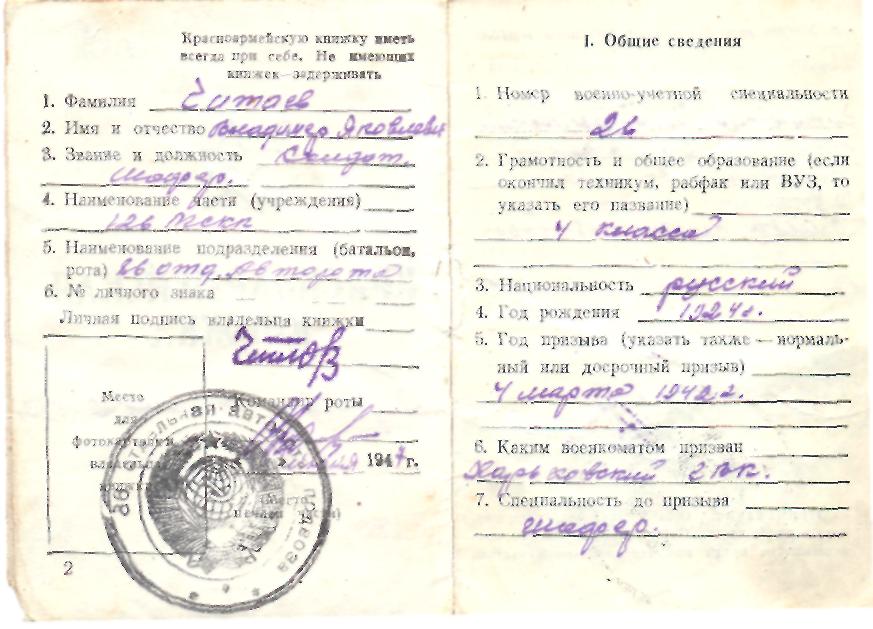 Красноармейскую книжку иметь
всегда при себе. Не имеющих
книжек—задерживать
1. Фамилия Читаев
2. Имя и отчество Владимир Яковлевич
3. Звание и должность Солдат.
шофер.
4. Наименование части (учреждения)
126
5. Наименование подразделения (батальон,
рота) автороты
6. № личного знака
Личная подпись владельца книжки
Место
для
фотокарточки
владельца
книжки
Командир роты
194 г.
(Место
печати части)
2
I. Общие сведения
1. Номер военно-учетной специальности
26
2. Грамотность и общее образование (если
окончил техникум, рабфак или ВУЗ, то
указать его название)
4 класса
3. Национальность русский
4. Год рождения 1924г.
5. Год призыва (указать также — нормаль-
ный или досрочный призыв)
4 марта 1942 г.
6. Каким военкоматом призван
Харьковский
7. Специальность до призыва
шофер.